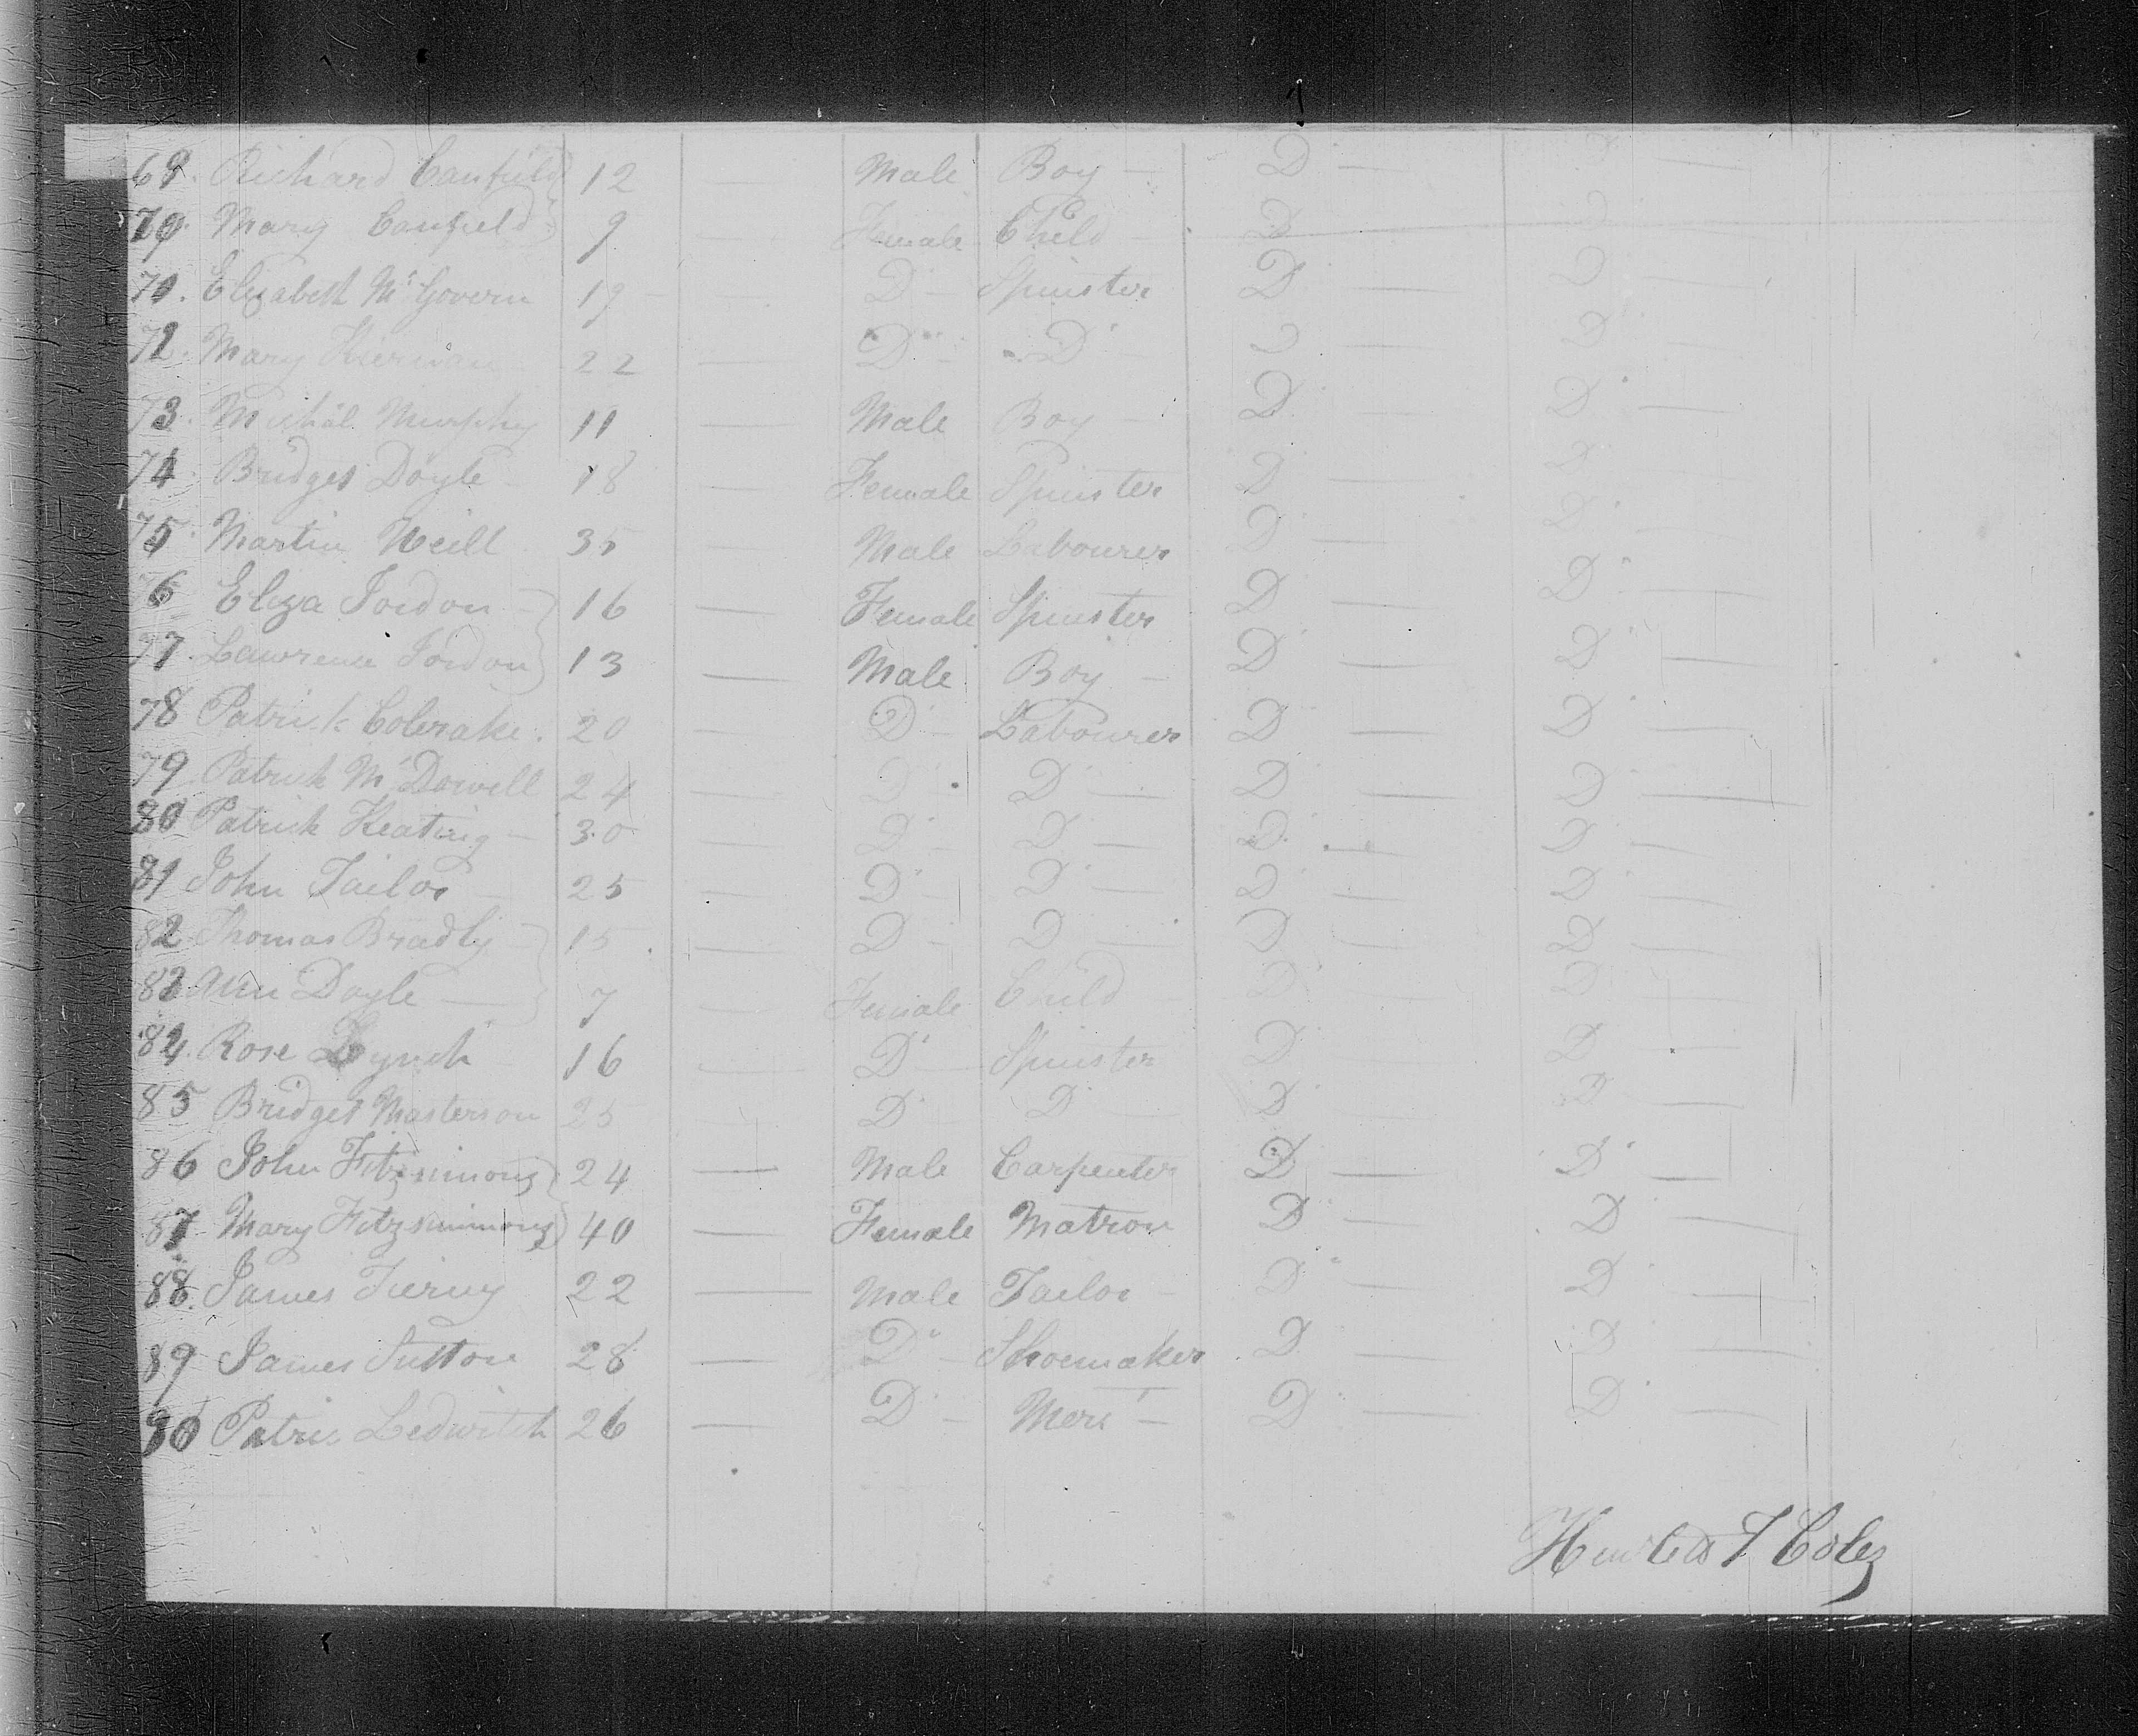 69. Richard Canfield 12 — Male Boy — D° — D° —
70. Mary Canfield 9 — Female Child — D° — D° —
71. Elizabeth McGovern 19 — — D° — Spinster D° — D° —
72. Mary Kiernan 22 — D° — D° D° — D° —
73. Michal Murphy 11 — Male Boy — D° — D° —
74. Bridget Doyle — 18 — Female Spinster D° — D° —
75. Martin Neill 35 — Male Labourer D° — D° —
76 Eliza Jordon — 16 — Female Spinster D° — D° —
77. Lawrence Jordon 13 — Male Boy — D° — D° —
78 Patrick Colerake. 20 — D° — Labourer D° — D° —
79 Patrick McDowell 24 — D° D° — D° — D° —
80 Patrick Keating — 30 — D° — D° — D° — D° —
81 John Tailor — 25 — D° — D° — D° — D° —
82 Thomas Bradly — 15 — D° — D° — D° — D° —
83 Ann Doyle — 7 — Female Child — D° — D° —
84. Rose Lynch 16 — D° — Spinster D° — D° —
85 Bridget Masterson 25 — D° — D° — D° — D° —
86 John Fitzsimons 24 — Male Carpenter D° — D° —
87 Mary Fitzsimmons 40 — Female Matron D° — D° —
88. James Tierny 22 — Male Tailor — D° — D° —
89 James Sutton 28 — D° — Shoemaker D° — D° —
90 Patric Ledwitch 26 — D° — Mert — D° — D° —
T Coles